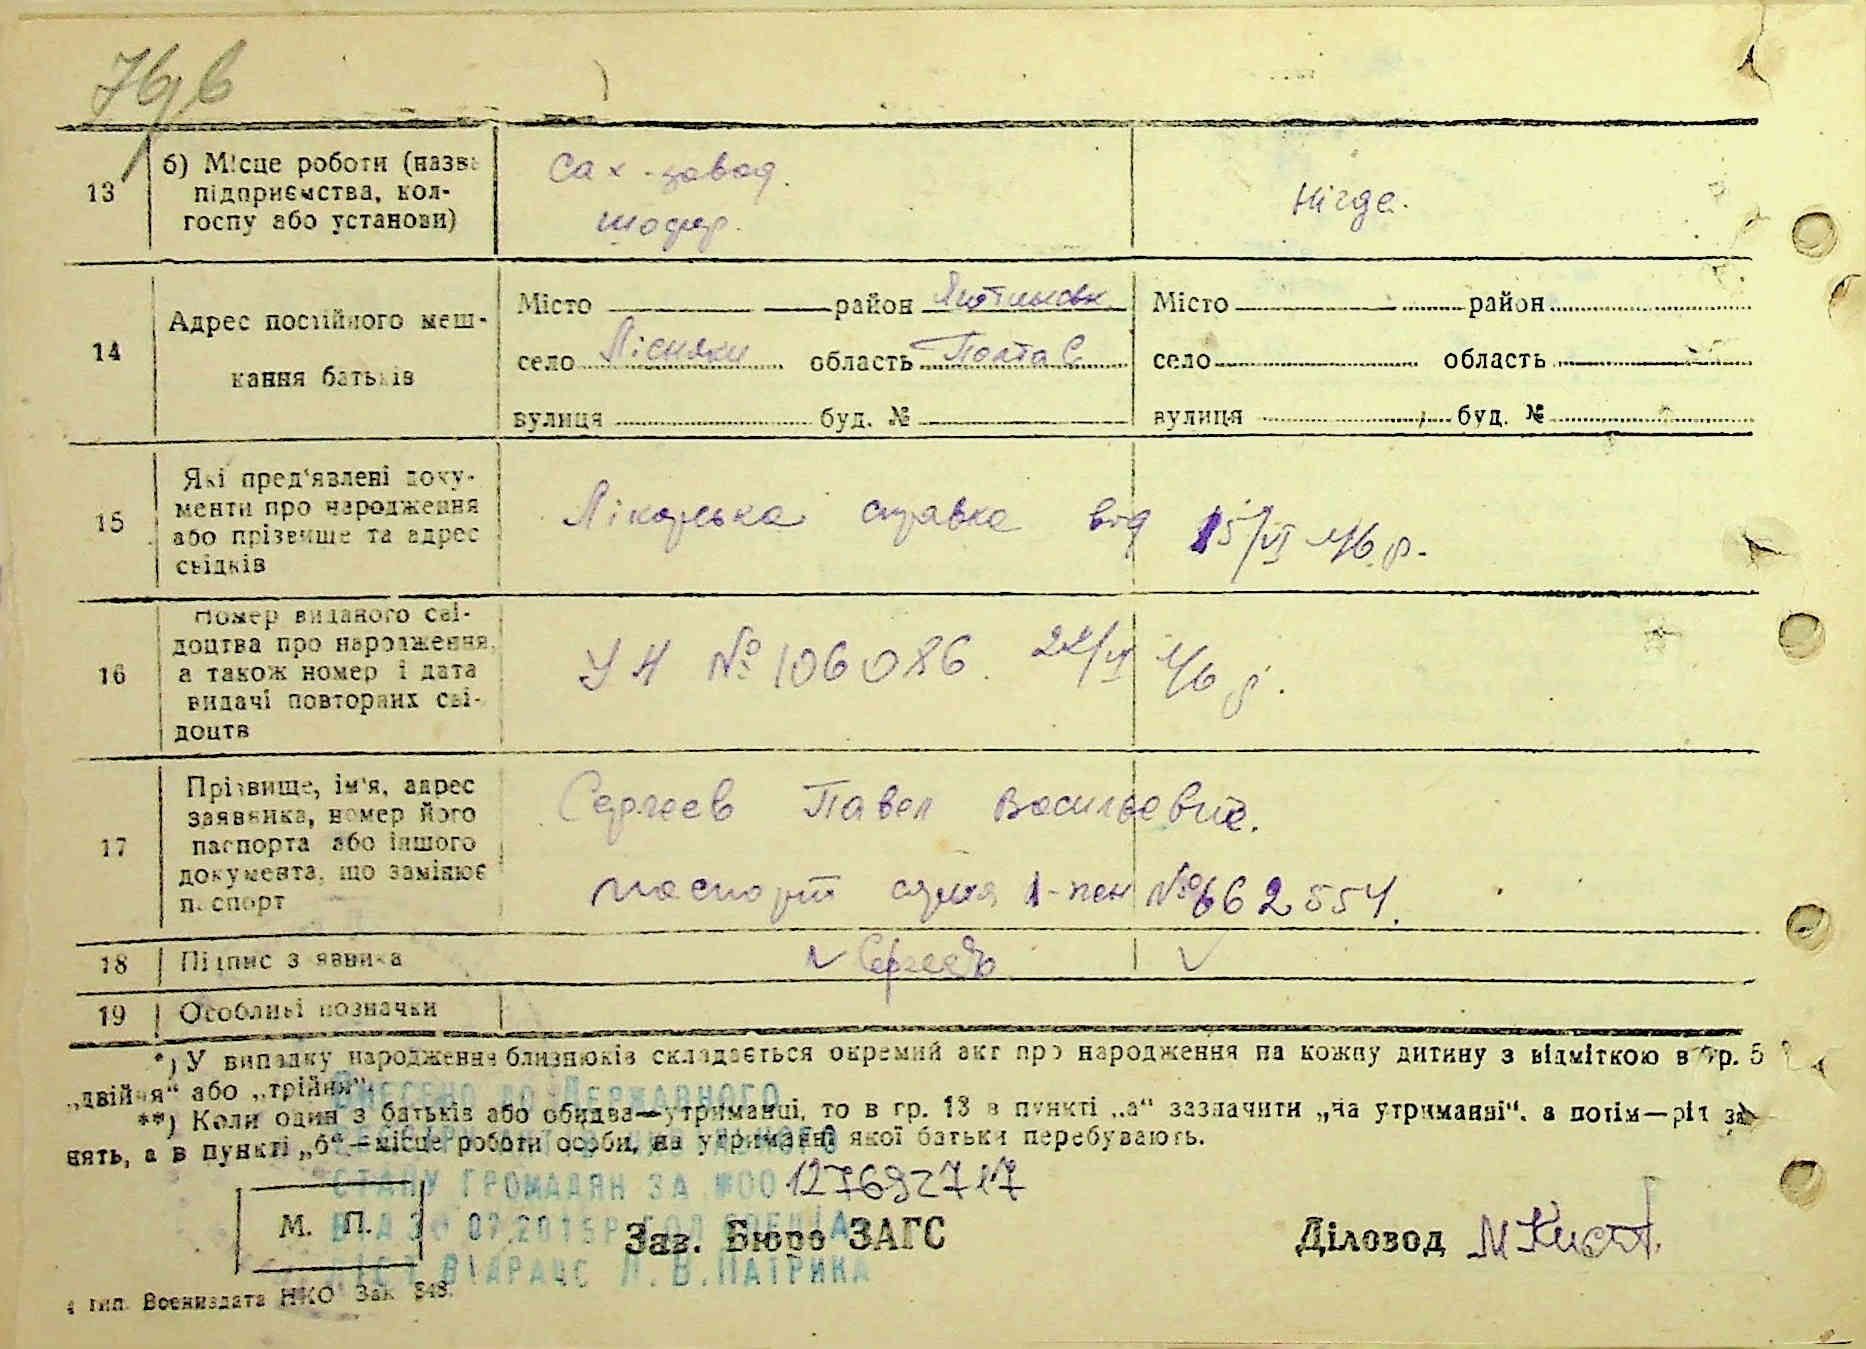 13
б) Місце роботи (назва
підприємства, кол-
госпу або установи)
Сах-завод.
шофер.
Нігде.
14
Адрес постійного меш-
кання батьків
Місто район Яготинськ
село Лісняки область Полтавс
вулиця буд. №
Місто район
село область
вулиця буд. №
15
Які пред'явлені доку-
менти про народження
або прізвище та адрес
свідків
Лікарська справка від 15/VI 46 р.
16
Номер виданого сві-
доцтва про народження,
а також номер і дата
видачі повторних сві-
доцтв
УН № 106086. 46 р.
17
Прізвище, ім'я, адрес
заявника, номер його
паспорта або іншого
документа, що замінює
паспорт
Сергеев Павел Васильевич.
паспорт серия № 662554.
18
Підпис заявника
Сергеев
19
Особливі позначки
*) У випадку народження близнюків складається окремий акт про народження на кожну дитину з відміткою в гр. 5
„двійня“ або „трійня“.
**) Коли один з батьків або обидва—утриманці, то в гр. 13 в пункті „а“ зазначити „на утриманні“, а потім—рід за-
нять, а в пункті „б“—місце роботи особи, на утриманні якої батьки перебувають.
ВНЕСЕНО ДО ДЕРЖАВНОГО
СТАНУ ГРОМАДЯН ЗА №00 127692717
М. П.
07.2015Р
Зав. Бюро ЗАГС
Діловод
Л.В.ПАТРИКА
тип. Воениздата НКО Зак 848.